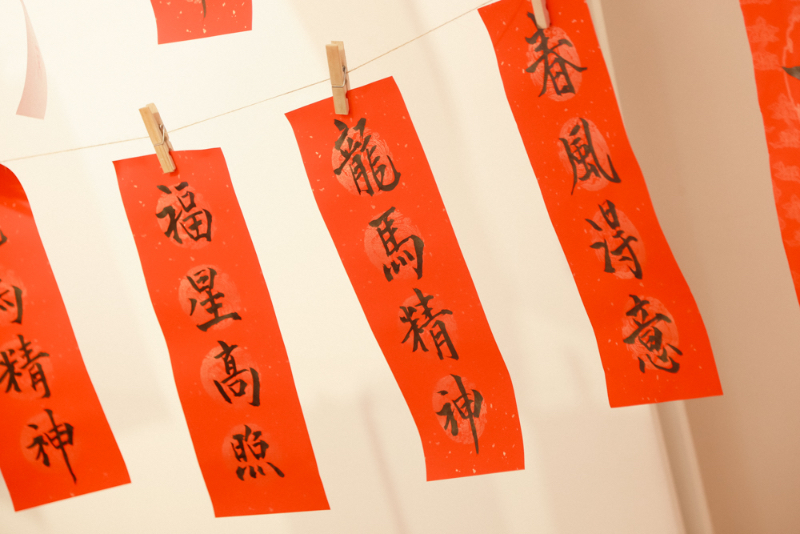 精神
福星高照
龍馬精神
春風得意